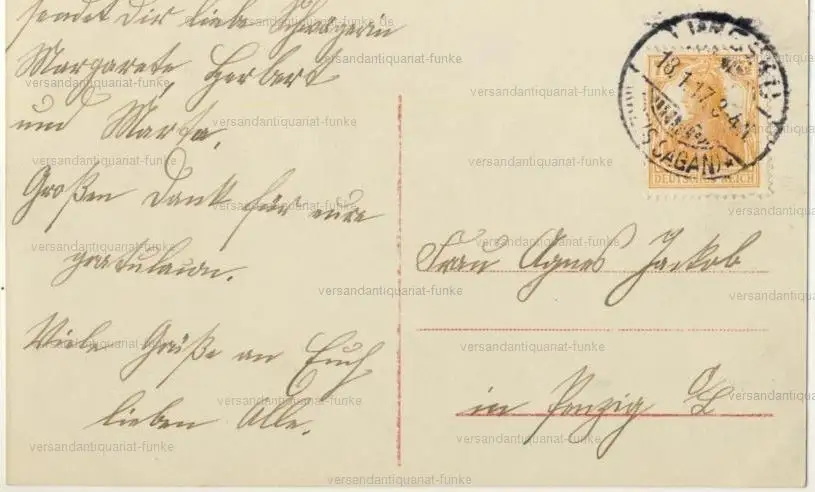 sendet dir liebe Schwägerin
Margarete Herbert
und Marta.
Großen Dank für eure
gratulation.
Viele Grüße an Euch
lieben Alle.
13.1.17.3-4N
(SAGAN)
DEUTSCHES REICH
Frau Agnes Jackob
in Penzig O/L
versandantiquariat-funke.de
versandantiquariat-funke